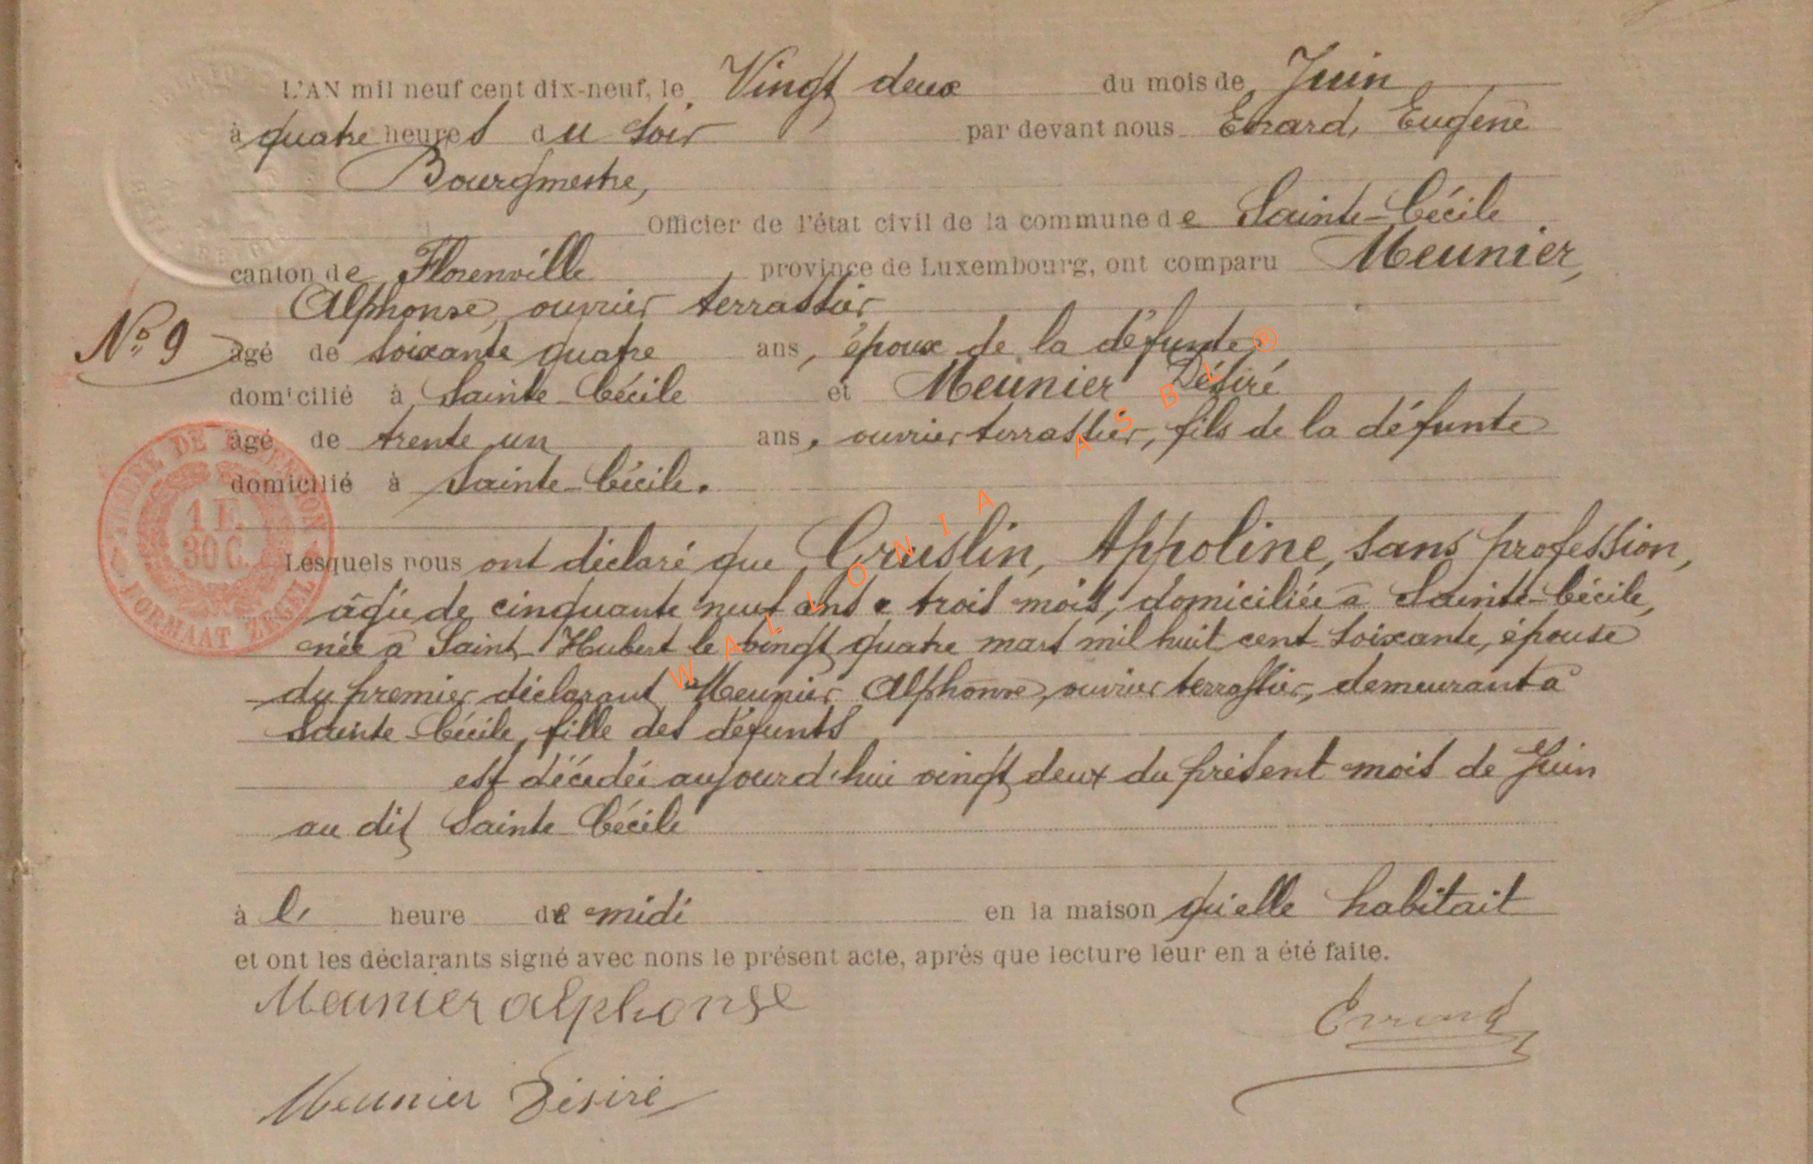 L'AN mil neuf cent dix-neuf, le Vingt deux du mois de Juin
à quatre heures du soir par devant nous Errard, Eugène
Bourgmestre,
Officier de l'état civil de la commune de Sainte-Cécile
canton de Florenville province de Luxembourg, ont comparu Meunier,
Alphonse, ouvrier terrassier
No 9 âgé de soixante quatre ans, époux de la défunte
domicilié à Sainte-Cécile et Meunier Désiré
âgé de trente un ans, ouvrier terrassier, fils de la défunte
domicilié à Sainte-Cécile.
TIMBRE DE DIMENSION
1 F.
30 C.
FORMAAT ZEGEL
Lesquels nous ont déclaré que Gruslin, Appoline, sans profession,
âgée de cinquante neuf ans e trois mois, domiciliée à Sainte-Cécile,
née à Saint Hubert le vingt quatre mars mil huit cent soixante, épouse
du premier déclarant Meunier Alphonse, ouvrier terrassier, demeurant à
Sainte-Cécile, fille des défunts
est décédée aujourd'hui vingt deux du présent mois de Juin
au dit Sainte Cécile
à l' heure de midi en la maison qu'elle habitait
et ont les déclarants signé avec nons le présent acte, après que lecture leur en a été faite.
Meunier alphonse
Errard
Meunier Désiré
WALLONIA ASBL ®